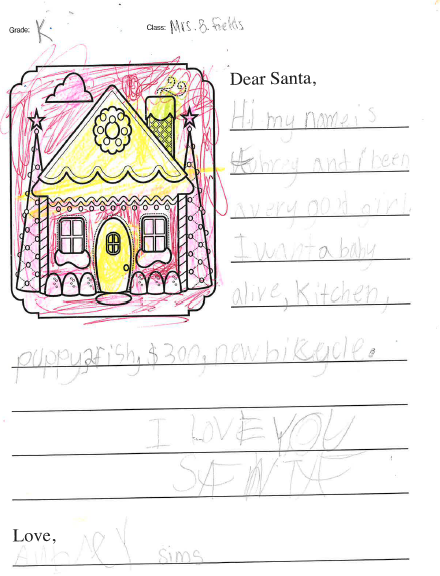 Grade: K Class: Mrs. B. Fields
Dear Santa,
Hi my name is
Aubrey and i been
a very good girl
I want a baby
alive, Kitchen,
puppy, fish, $300, new bikcycle.
I LOVE YOU
SANTA
Love,
sims